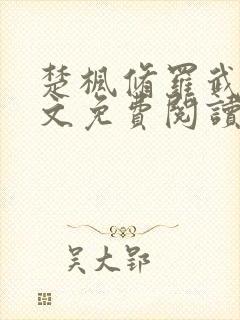 楚楓脩羅武
文免費閱讀
吴大郢